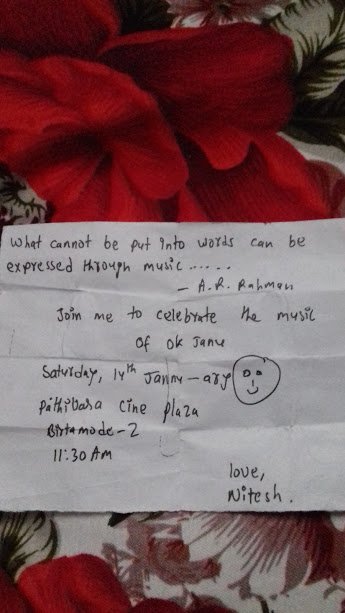 What cannot be put into words can be
expressed through music......
- A.R. Rahman
Join me to celebrate the music
of ok Janu
Saturday, 14th Jannu-ary
Pathibara Cine plaza
Birtamode-2
11:30 AM
love,
Nitesh.